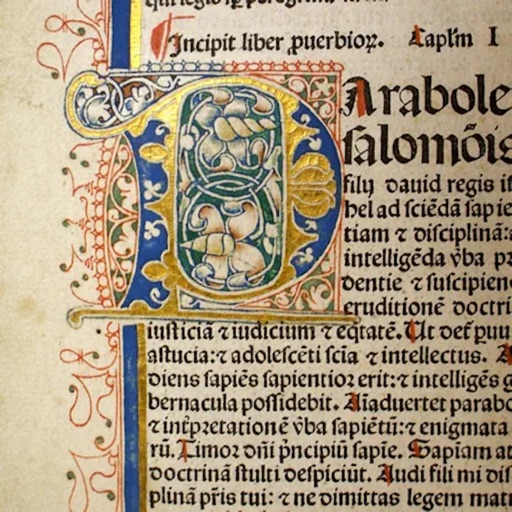 Incipit liber ꝓuerbioꝝ. Caplm̃ I
Arabole
salomõis
filij dauid regis is
hel ad sciẽdã sapie
tiam ⁊ disciplinã:
intelligẽda ꝟba pr
dentie ⁊ suscipien
eruditionẽ doctri
iusticiã ⁊ iudicium ⁊ eq̃tatẽ. Ut det᷑ puu
astucia: ⁊ adolescẽti scĩa ⁊ intellectus. A
diens sapiẽs sapientior erit: ⁊ intelligẽs g
bernacula possidebit. Aĩaduertet parabo
⁊ int̃pretationẽ ꝟba sapiẽtũ: ⁊ enigmata
rũ. Timor dñi pñcipiũ sapiẽ. Sapiam at
doctrinã stulti despiciũt. Audi fili mi dis
plinã pr̃is tui: ⁊ ne dimittas legem matr